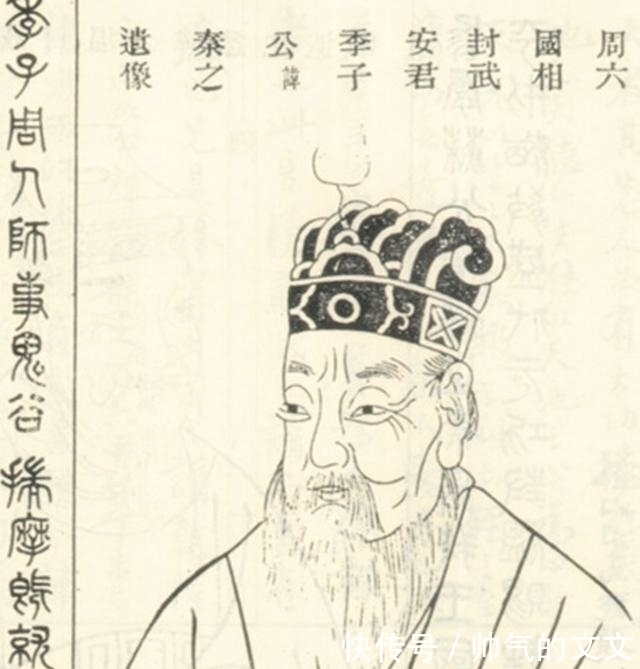 周六
國相
封武
安君
季子
公諱
秦之
遺像
季子周人師事鬼谷揣摩既就
快传号 / 帅气的文文